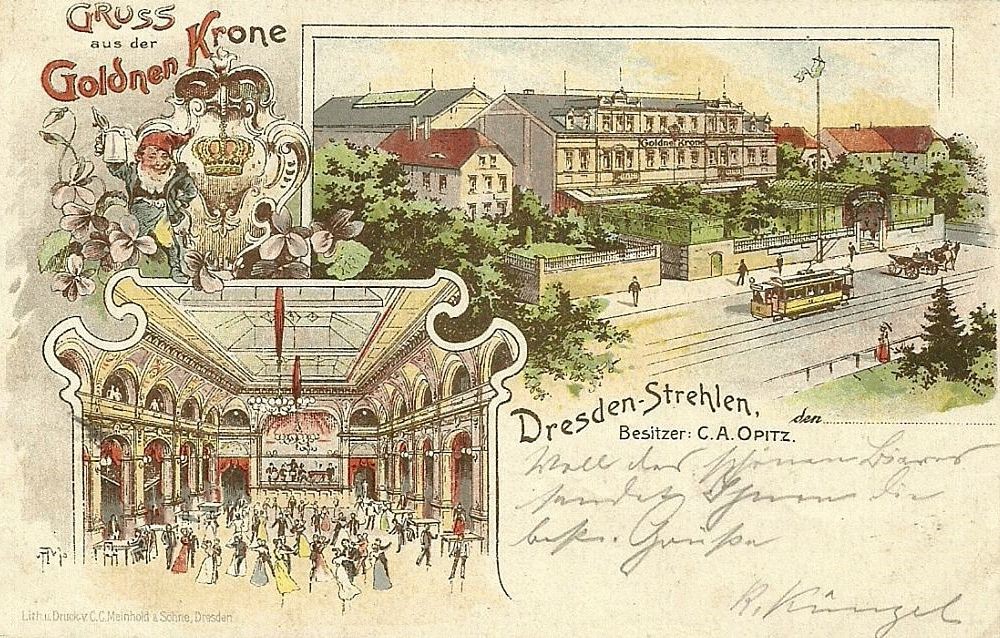 GRUSS
aus der
Goldnen Krone
Goldne Krone
Dresden-Strehlen,
den
Besitzer: C. A. OPITZ.
Voll des schönen Bieres
sendet Ihnen die
besten Grüße
R. Künzel
Lith. u. Druck v. C. C. Meinhold & Söhne, Dresden